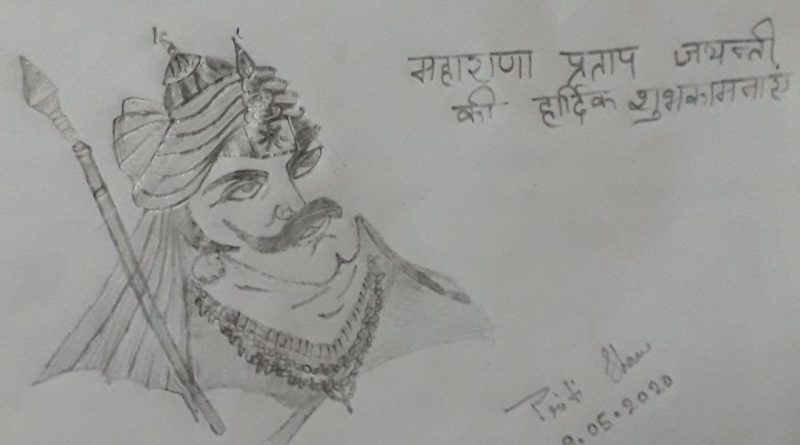 महाराणा प्रताप जयन्ती
की हार्दिक शुभकामनाएं
Priti Shaw
9.05.2020